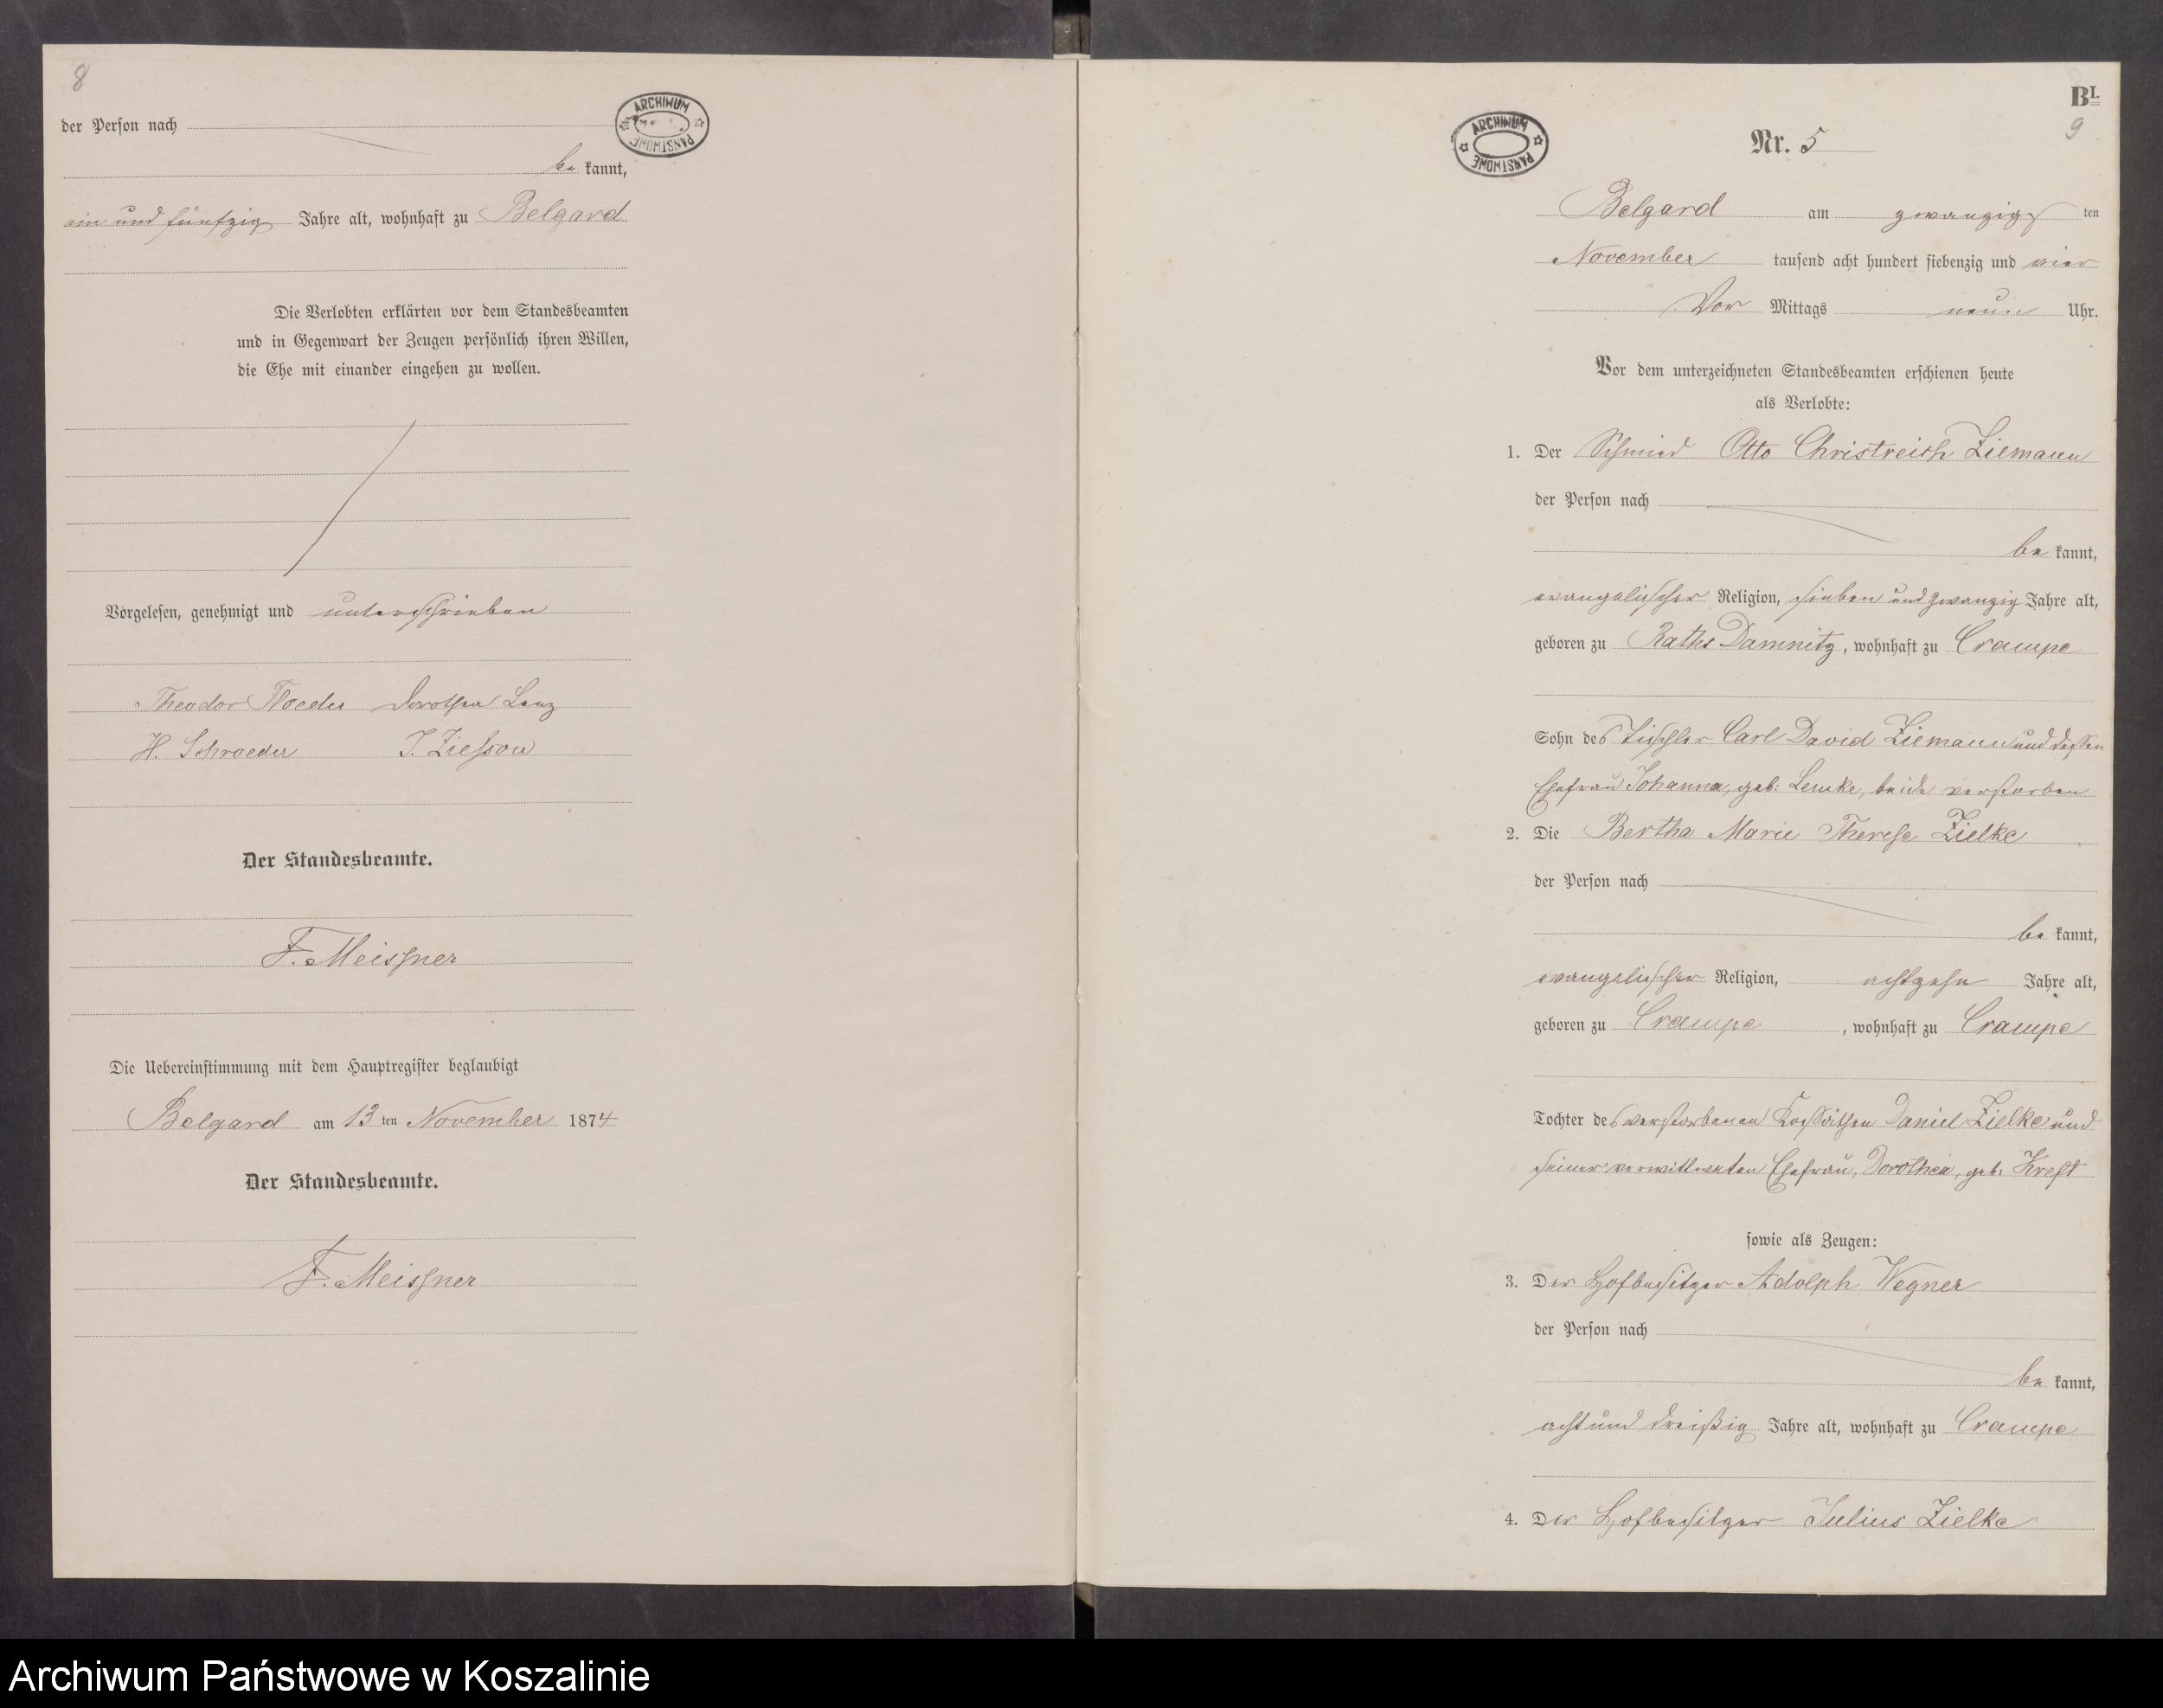 8
der Person nach
be kannt,
ein und fünfzig Jahre alt, wohnhaft zu Belgard
Die Verlobten erklärten vor dem Standesbeamten
und in Gegenwart der Zeugen persönlich ihren Willen,
die Ehe mit einander eingehen zu wollen.
Vorgelesen, genehmigt und unterschrieben
Theodor Dorothea Lenz
H. Schroeder
Der Standesbeamte.
F. Meissner
Die Uebereinstimmung mit dem Hauptregister beglaubigt
Belgard am 13 ten November 1874
Der Standesbeamte.
F. Meissner
ARCHIWUM PAŃSTWOWE
ARCHIWUM PAŃSTWOWE
BI.
9
Nr. 5
Belgard am zwanzigs ten
November tausend acht hundert siebenzig und vier
Vor Mittags neun Uhr.
Vor dem unterzeichneten Standesbeamten erschienen heute
als Verlobte:
1. Der Schmied Otto Ziemann
der Person nach
be kannt,
evangelischer Religion, sieben und zwanzig Jahre alt,
geboren zu Raths Damnitz, wohnhaft zu Crampe
Sohn des Tischler Carl David Ziemann und dessen
Ehefrau Johanna, geb: Lemke, beide verstorben
2. Die Bertha Marie Therese Zielke
der Person nach
be kannt,
evangelischer Religion, achtzehn Jahre alt,
geboren zu Crampe, wohnhaft zu Crampe
Tochter des verstorbenen Kossäthen Daniel Zielke und
seiner verwittweten Ehefrau, Dorothea, geb: Kreft
sowie als Zeugen:
3. Der Hofbesitzer Adolph Wegner
der Person nach
be kannt,
acht und dreißig Jahre alt, wohnhaft zu Crampe
4. Der Hofbesitzer Julius Zielke
Archiwum Państwowe w Koszalinie